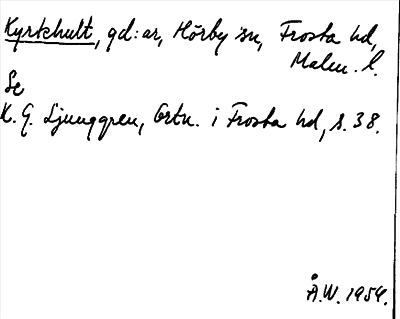 Kyrkhult, gd:ar, Hörby sn, Frosta hd,
Malm. l.
Se
K. G. Ljunggren, Ortn. i Frosta hd, s. 38.
Å.W. 1954.